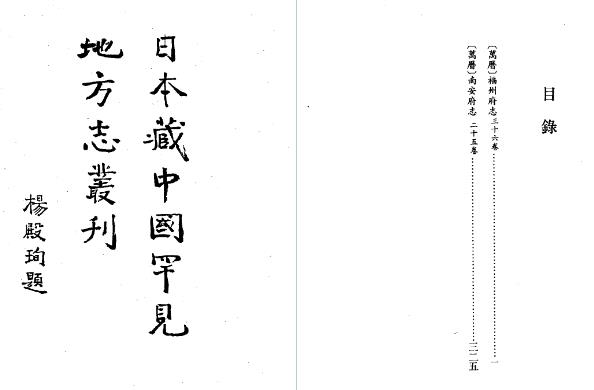 日本藏中國罕見
地方志叢刊
楊殿珣題
目錄
〔萬曆〕福州府志 三十六卷……一
〔萬曆〕南安府志 二十五卷……三二五